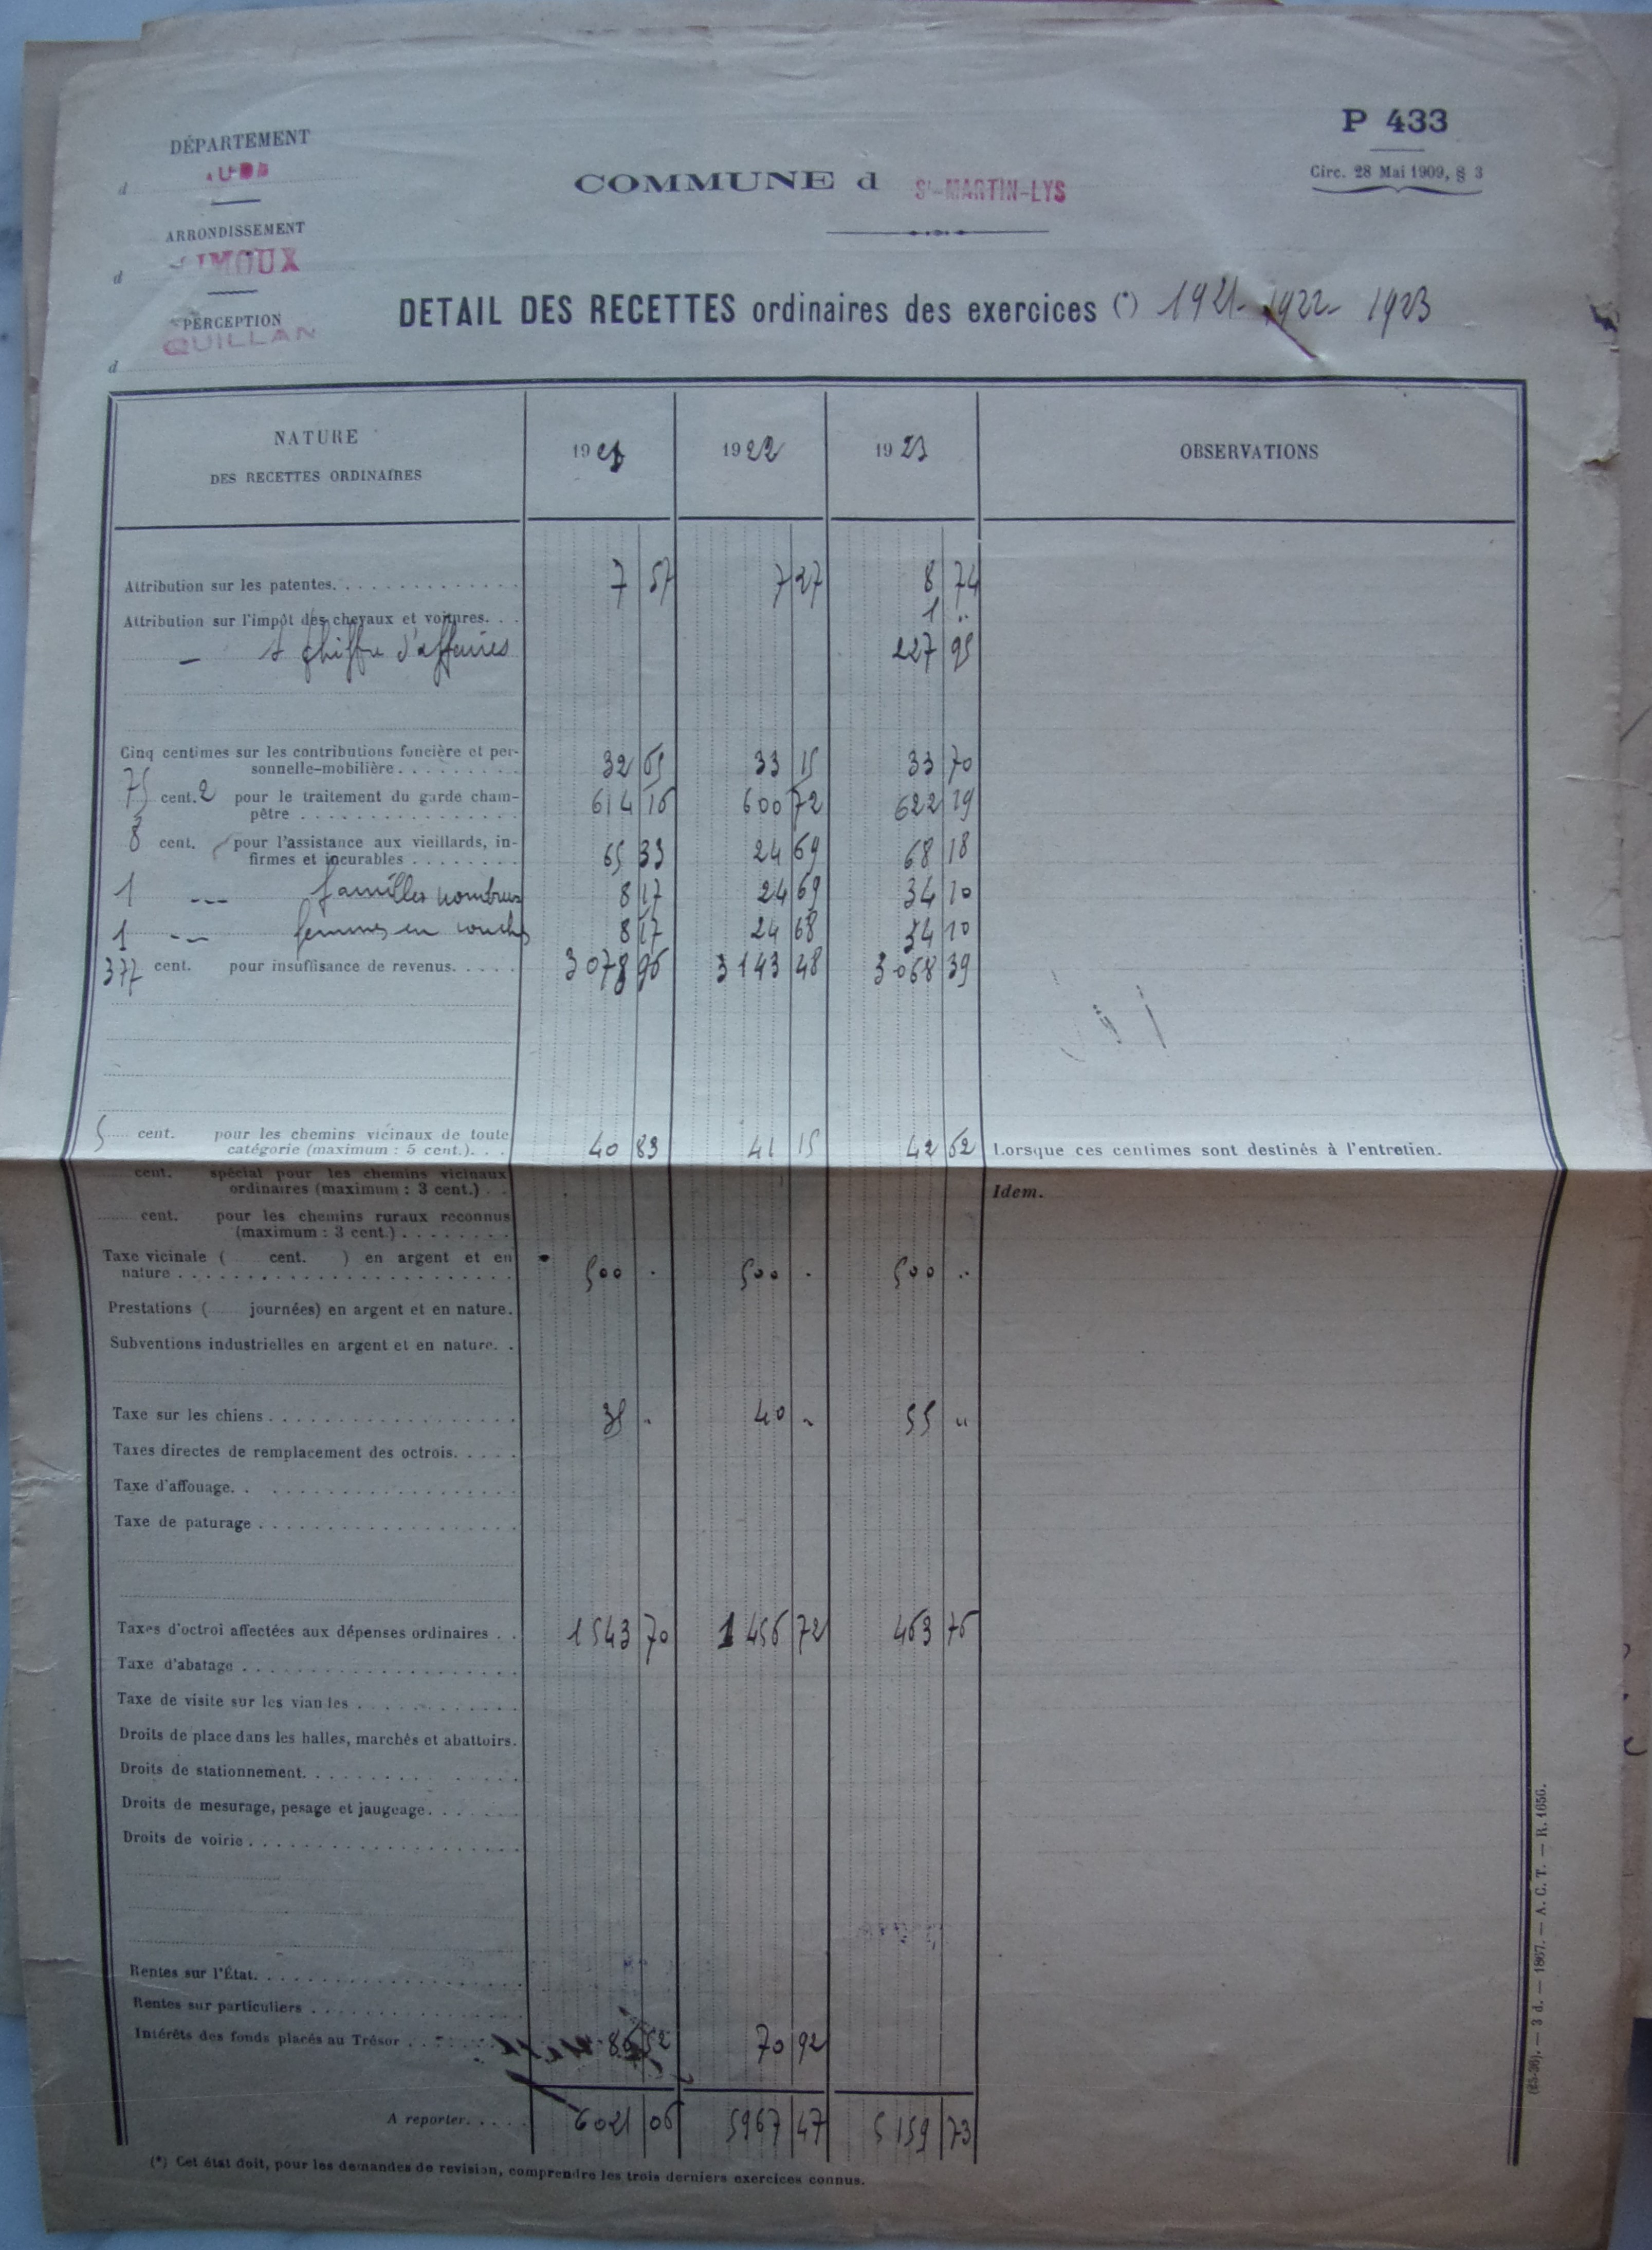 DÉPARTEMENT
d UDE
ARRONDISSEMENT
d LIMOUX
PERCEPTION
d QUILLAN
COMMUNE d St-MARTIN-LYS
P 433
Circ. 28 Mai 1909, § 3
DETAIL DES RECETTES ordinaires des exercices (*) 1921- 1922- 1923
NATURE DES RECETTES ORDINAIRES 1921 1922 1923 OBSERVATIONS
Attribution sur les patentes. 7 57 7 27 8 74
Attribution sur l'impôt des chevaux et voitures. 1 "
— s chiffre d'affaires 227 95
Cinq centimes sur les contributions foncière et per-
sonnelle-mobilière 32 65 33 15 33 70
75 cent. 2 pour le traitement du garde cham-
pêtre 614 16 600 72 622 19
8 cent. pour l'assistance aux vieillards, in-
firmes et incurables 65 33 24 69 68 18
1 --- familles nombreuses 8 17 24 69 34 10
1 --- femmes en couches 8 17 24 68 34 10
377 cent. pour insuffisance de revenus. 3078 96 3143 48 3068 39
5 cent. pour les chemins vicinaux de toute
catégorie (maximum : 5 cent.). 40 83 41 15 42 62 Lorsque ces centimes sont destinés à l'entretien.
cent. spécial pour les chemins vicinaux
ordinaires (maximum : 3 cent.) Idem.
cent. pour les chemins ruraux reconnus
(maximum : 3 cent.)
Taxe vicinale ( cent. ) en argent et en
nature 500 . 500 . 500 ..
Prestations ( journées) en argent et en nature.
Subventions industrielles en argent et en nature.
Taxe sur les chiens 35 " 40 " 55 "
Taxes directes de remplacement des octrois.
Taxe d'affouage.
Taxe de paturage
Taxes d'octroi affectées aux dépenses ordinaires 1543 70 1456 72 463 76
Taxe d'abatage
Taxe de visite sur les viandes
Droits de place dans les halles, marchés et abattoirs.
Droits de stationnement.
Droits de mesurage, pesage et jaugeage.
Droits de voirie
Rentes sur l'État.
Rentes sur particuliers
Intérêts des fonds placés au Trésor 86 52 70 92
A reporter. 6021 06 5967 47 5159 73
(*) Cet état doit, pour les demandes de revision, comprendre les trois derniers exercices connus.
(23-36). — 3 d. — 1867. — A. C. T. — R. 1650.